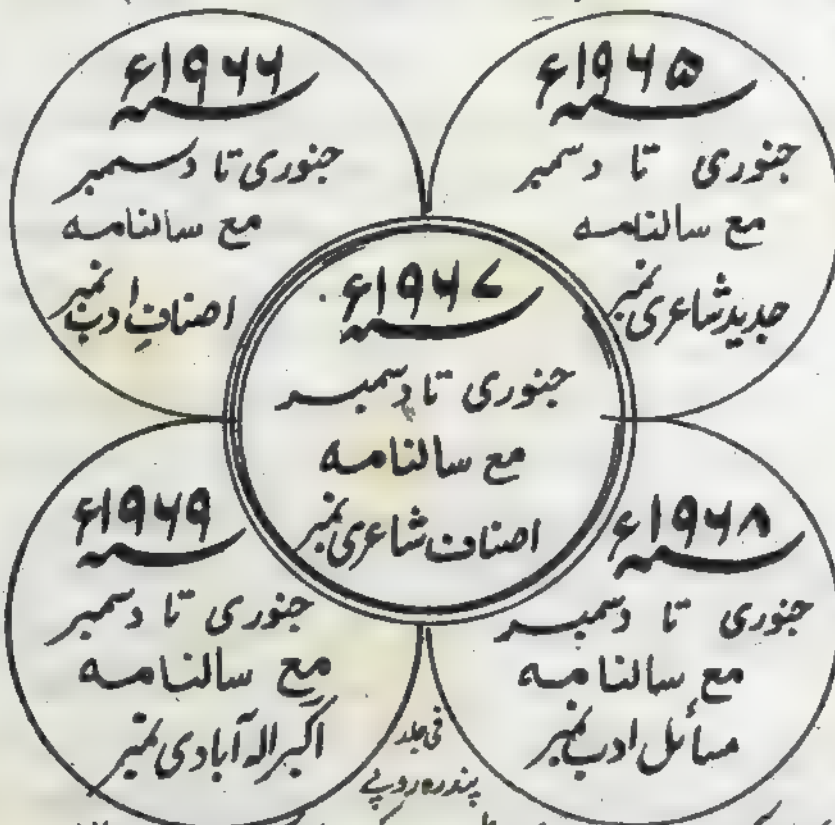 ۱۹۶۵ء
جنوری تا دسمبر
مع سالنامہ
جدید شاعری نمبر
۱۹۶۶ء
جنوری تا دسمبر
مع سالنامہ
اصنافِ ادب نمبر
۱۹۶۷ء
جنوری تا دسمبر
مع سالنامہ
اصناف شاعری نمبر
۱۹۶۸ء
جنوری تا دسمبر
مع سالنامہ
مسائل ادب نمبر
۱۹۶۹ء
جنوری تا دسمبر
مع سالنامہ
اکبر الہ آبادی نمبر
فی جلد
پندرہ روپے